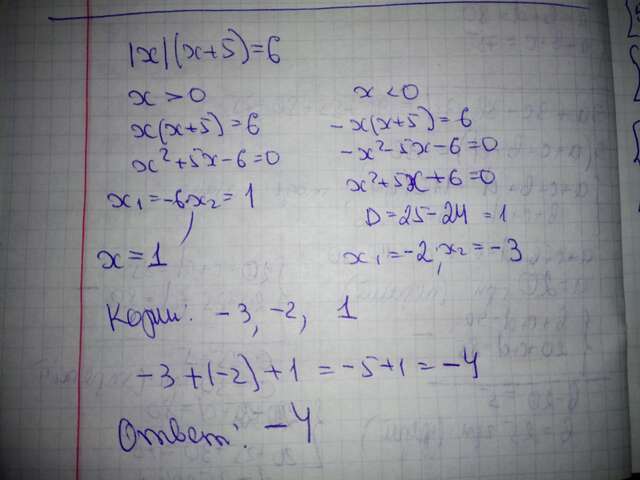 |x|(x+5)=6
x>0
x(x+5)=6
x²+5x-6=0
x₁=-6, x₂=1
x=1
x<0
-x(x+5)=6
-x²-5x-6=0
x²+5x+6=0
D=25-24=1
x₁=-2, x₂=-3
Корни: -3, -2, 1
-3+(-2)+1=-5+1=-4
Ответ: -4